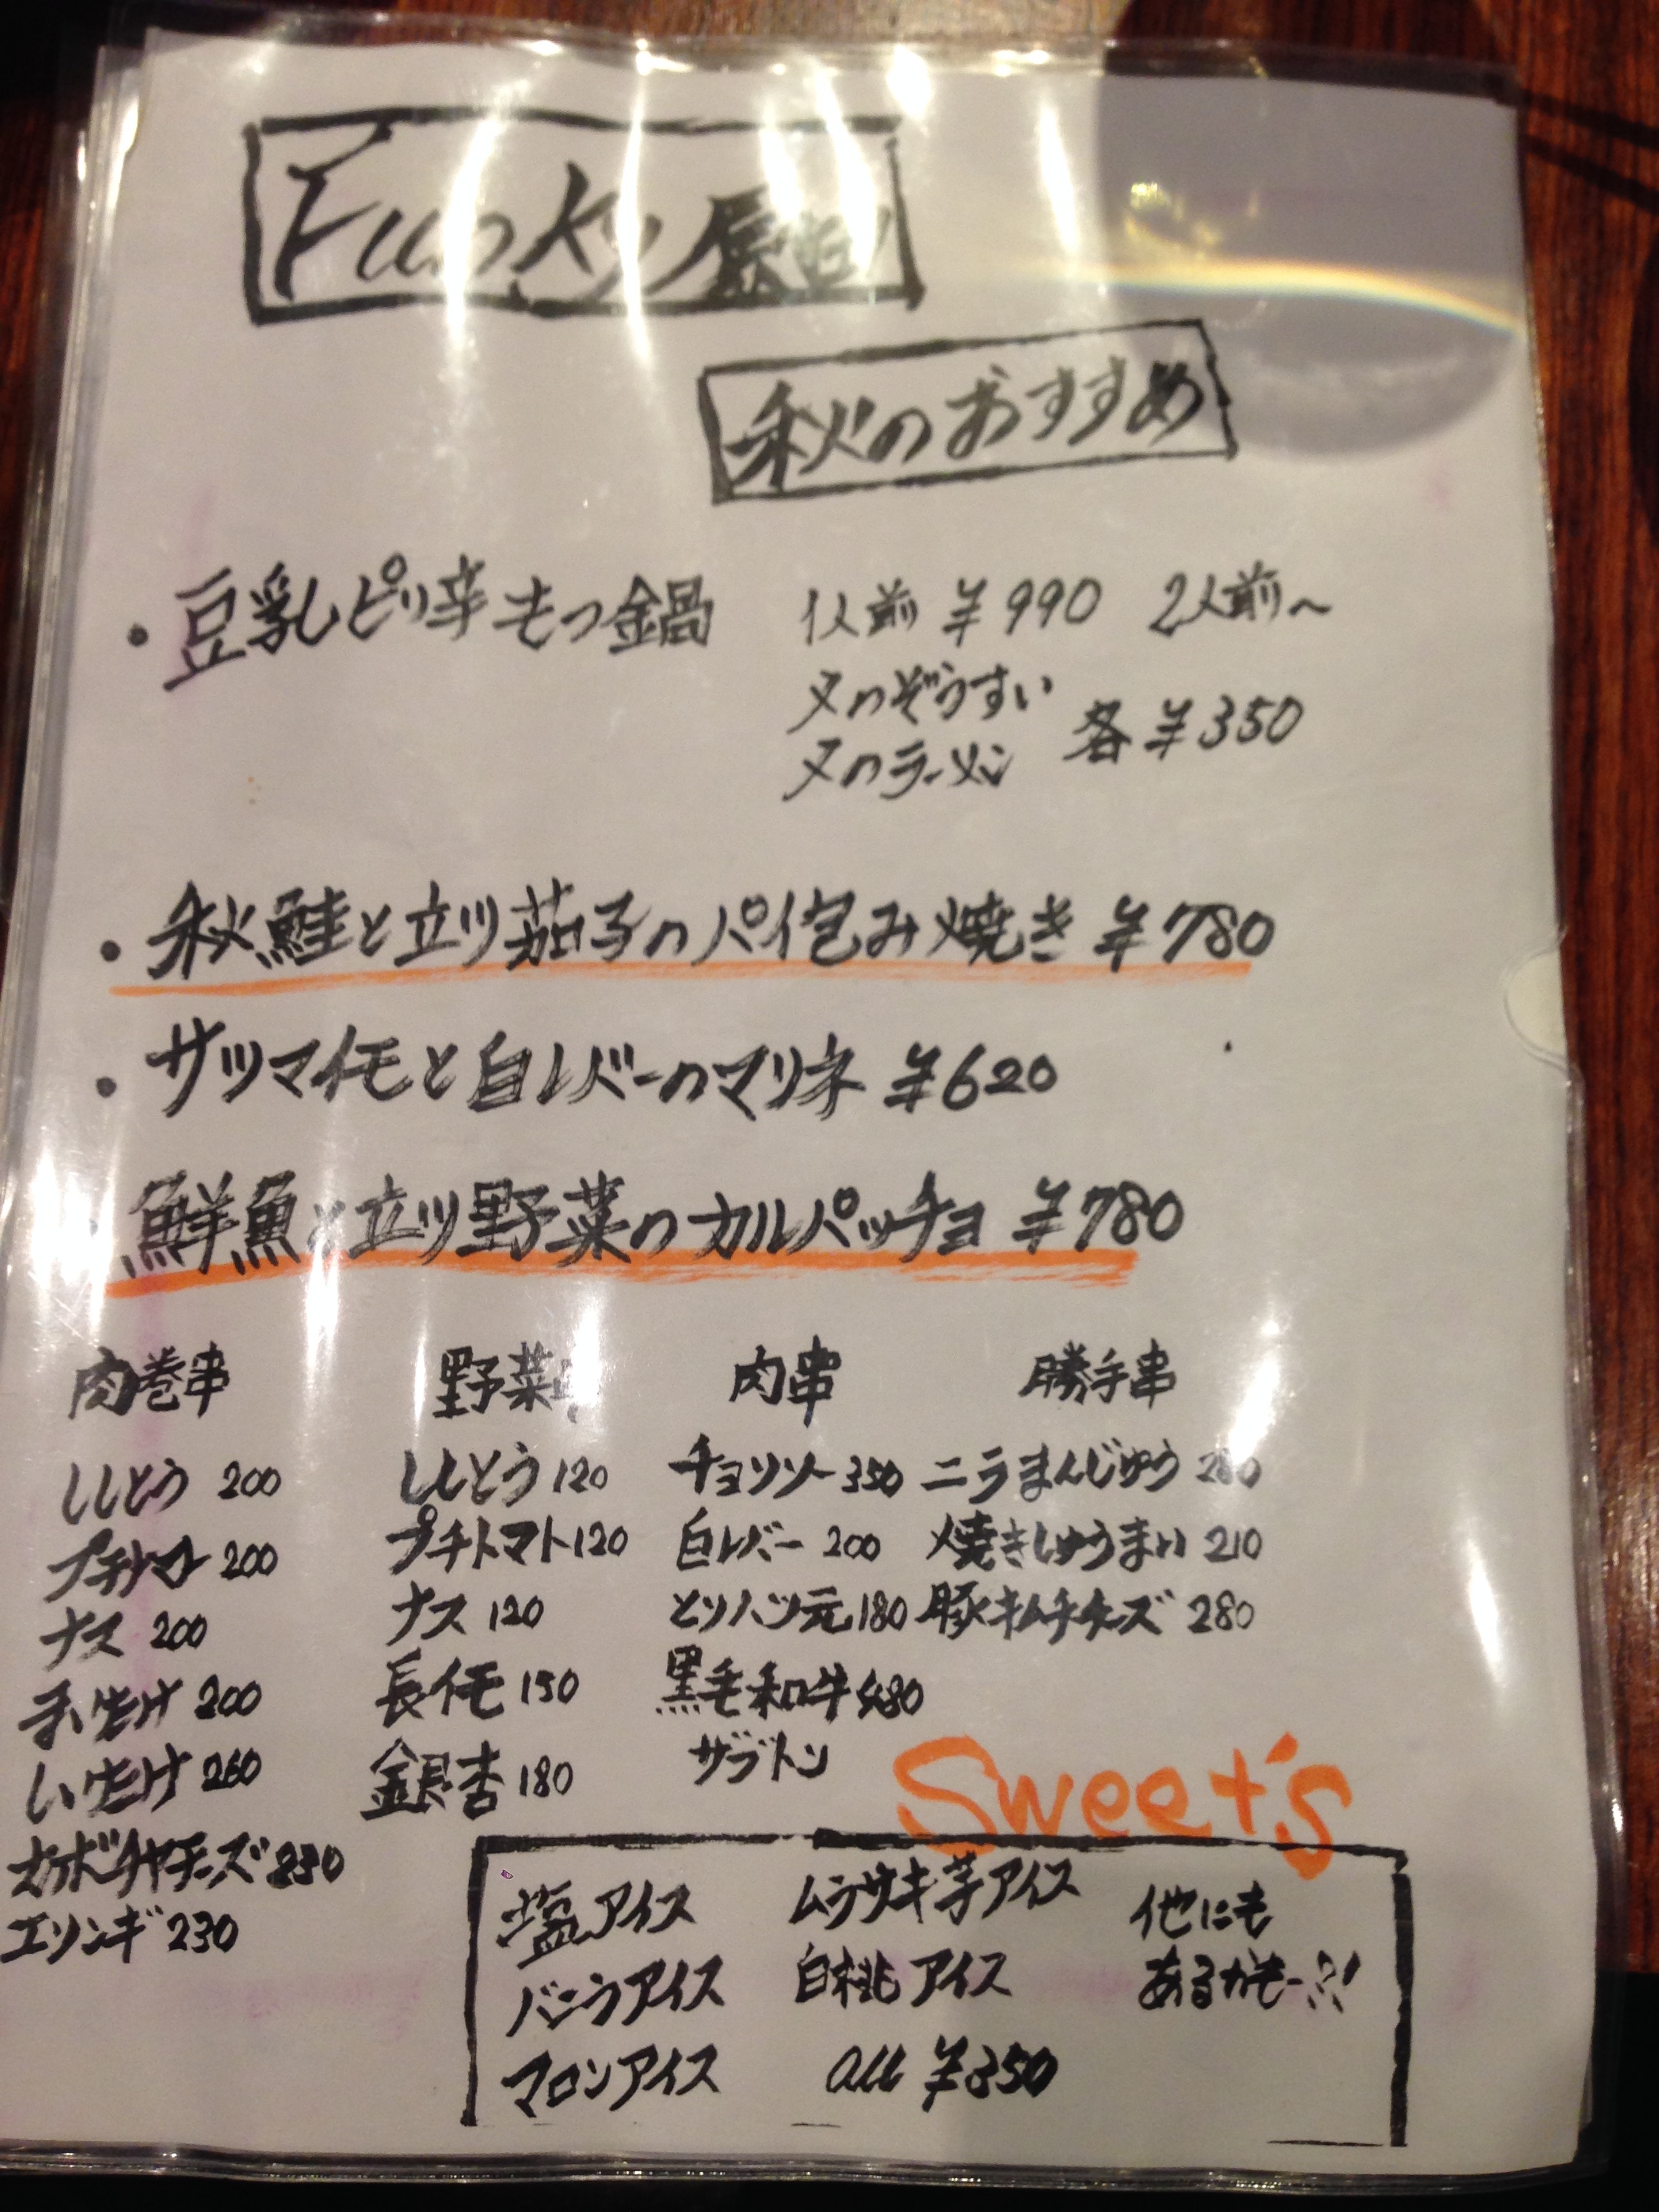 Funky
秋のおすすめ
・豆乳ピリ辛もつ鍋 1人前 ¥990 2人前〜
〆のぞうすい
〆のラーメン 各¥350
・秋鮭と立ツ茄子のパイ包み焼き ¥780
・サツマイモと白レバーのマリネ ¥620
・鮮魚と立ツ野菜のカルパッチョ ¥780
肉巻串
ししとう 200
プチトマト 200
ナス 200
まいたけ 200
しいたけ 260
カボチャチーズ 230
エリンギ 230
野菜串
ししとう 120
プチトマト 120
ナス 120
長イモ 150
銀杏 180
肉串
チョリソー 350
白レバー 200
とりハツ元 180
黒毛和牛 480
ザブトン
勝手串
ニラまんじゅう 280
焼きしゅうまい 210
豚キムチチーズ 280
Sweet's
塩アイス
バニラアイス
マロンアイス
ムラサキ芋アイス
白桃アイス
all ¥350
他にも
あるかもー!!